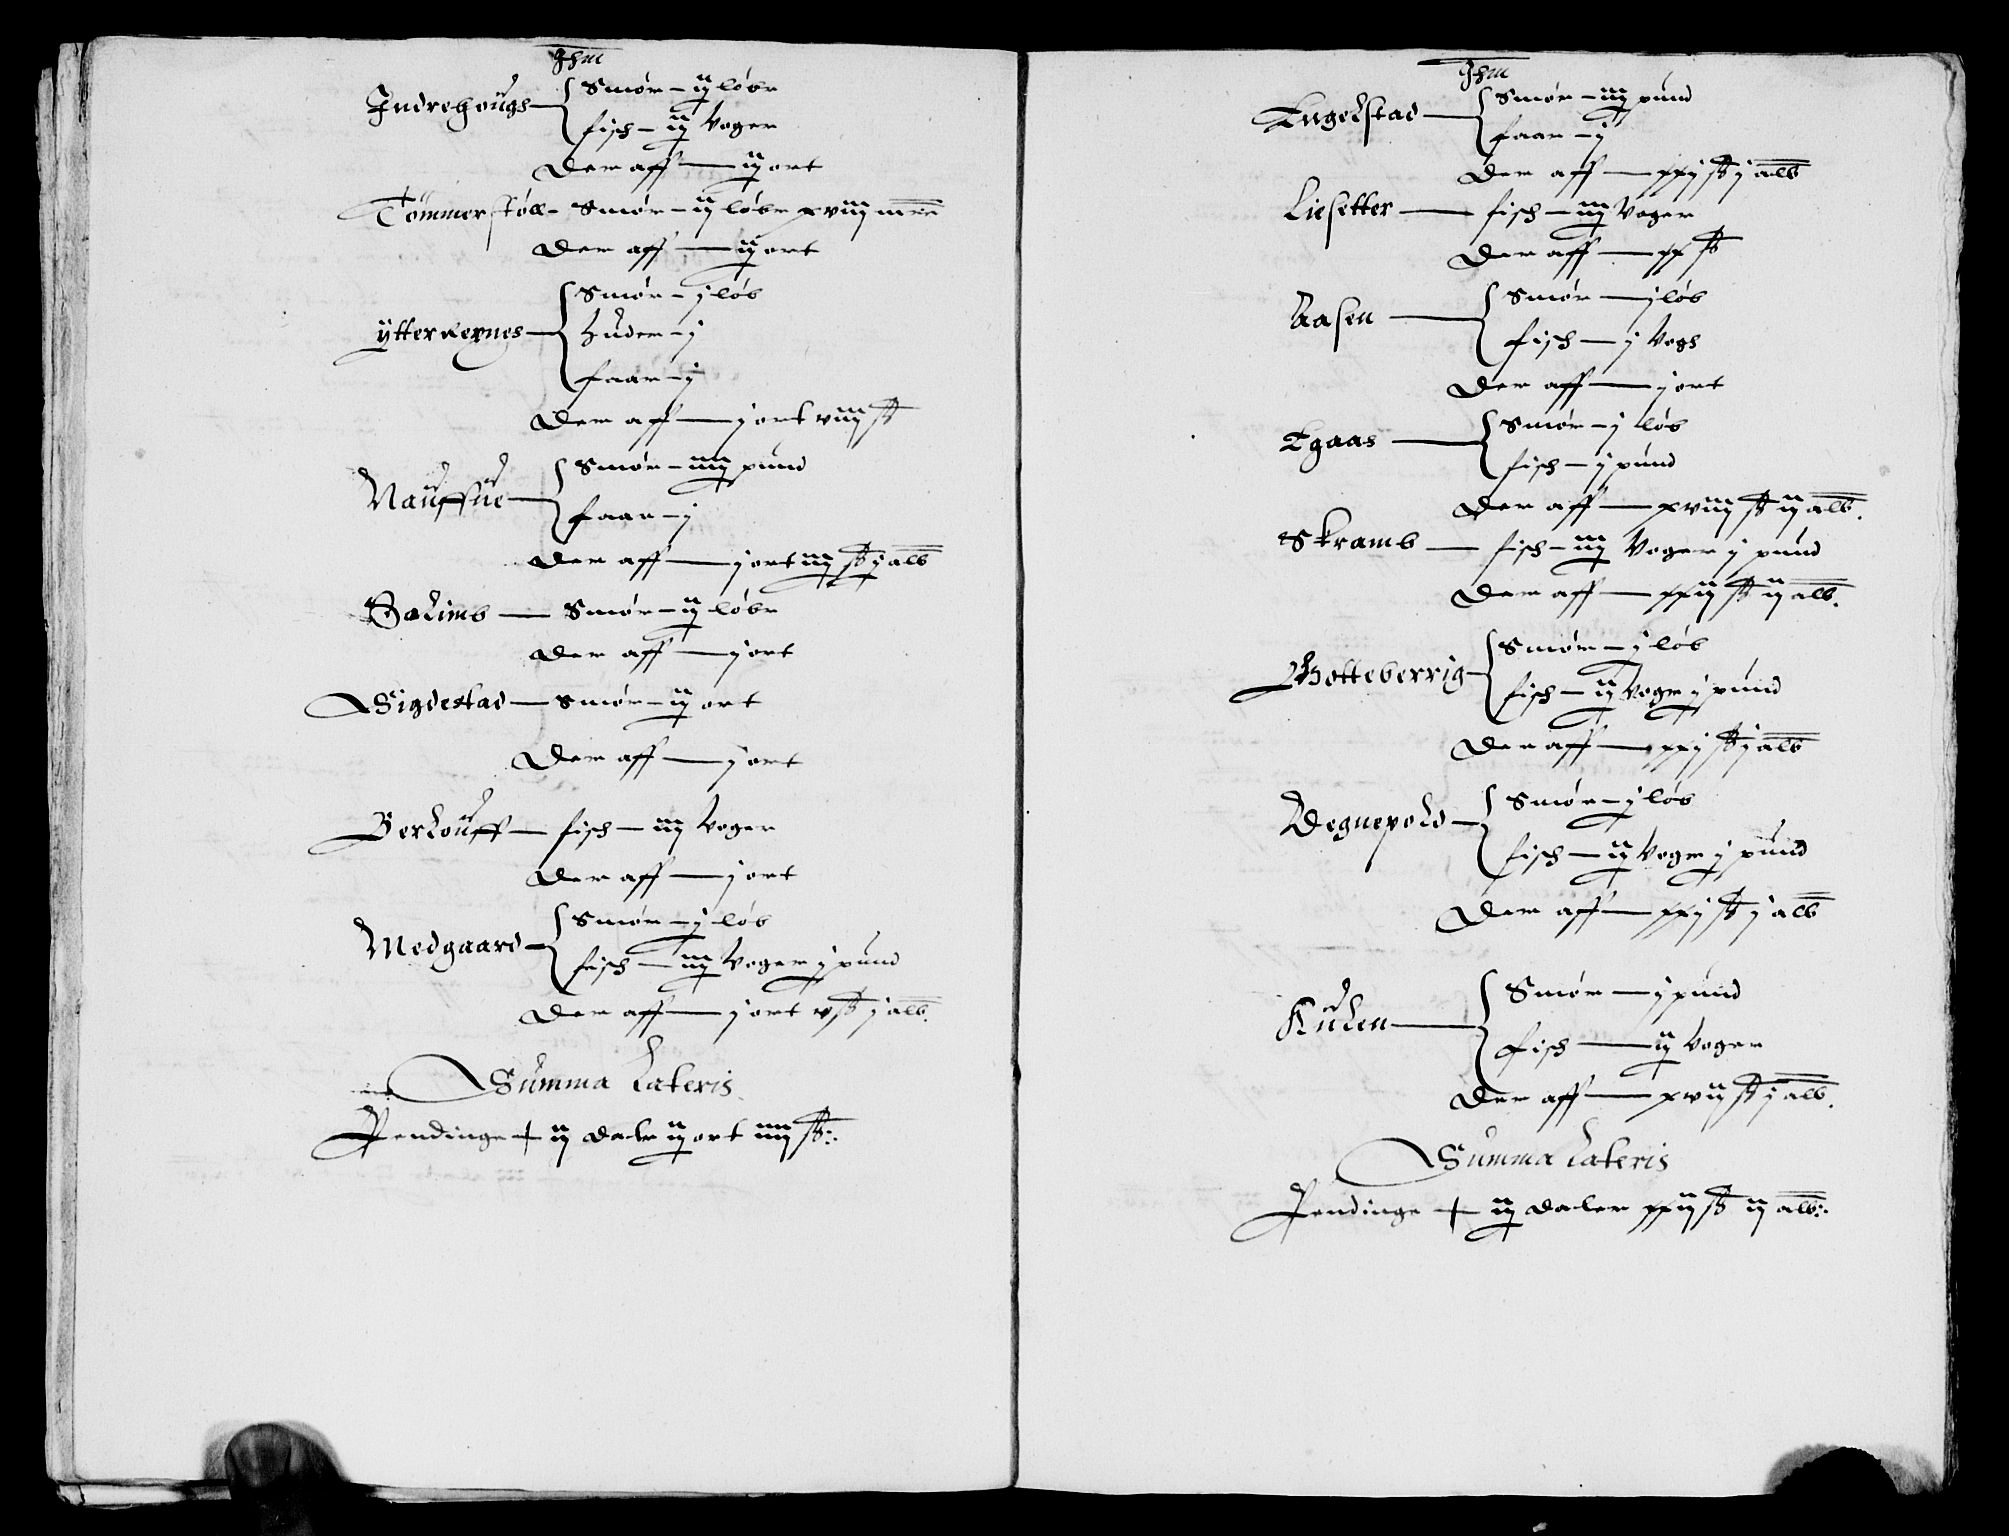 Jhm
Indrehougs { Smør – ij løbr
fisch – ij Voger
Der aff — ij ort
Tømmerstøll – Smør – ij løbr xviij mrr
Der aff — ij ort
ytterRegnes { Smør – j løb
huder – j
faar – j
Der aff — j ort viij ß
Nauffue { Smør – iiij pund
faar – j
Der aff — j ort iiij ß j alb
Solimb — Smør – ij løbr
Der aff — j ort
Sigdestad — Smør – ij ort
Der aff — j ort
Berkouff — fisch – iij Voger
Der aff — j ort
Medgaard { Smør – j løb
fisch – iij Voger j pund
Der aff — j ort v ß j alb.
Summa Lateris
Pendinge + ij dalr ij ort iiij ß
Jhm
Engelstad { Smør – iiij pund
faar – j
Der aff — xxj ß j alb
Liesetter — fisch – iiij Voger
Der aff — xx ß
Aasen { Smør — j løb
fisch — j Vogh
Der aff — j ort
Egaas { Smør – j løb
fisch – j pund
Der aff — xviij ß ij alb.
Skramb — fisch – iiij Voger j pund
Der aff — xxij ß ij alb.
Botteberrig { Smør – j løb
fisch – ij Vogr j pund
Der aff — xxj ß j alb
Degnepold { Smør – j løb
fisch — ij Vogr j pund
Der aff — xxj ß j alb
Kulen { Smør — j pund
fisch — ij Voger
Der aff — xvij ß j alb.
Summa Lateris
Pendinge + ij daler xxij ß ij alb